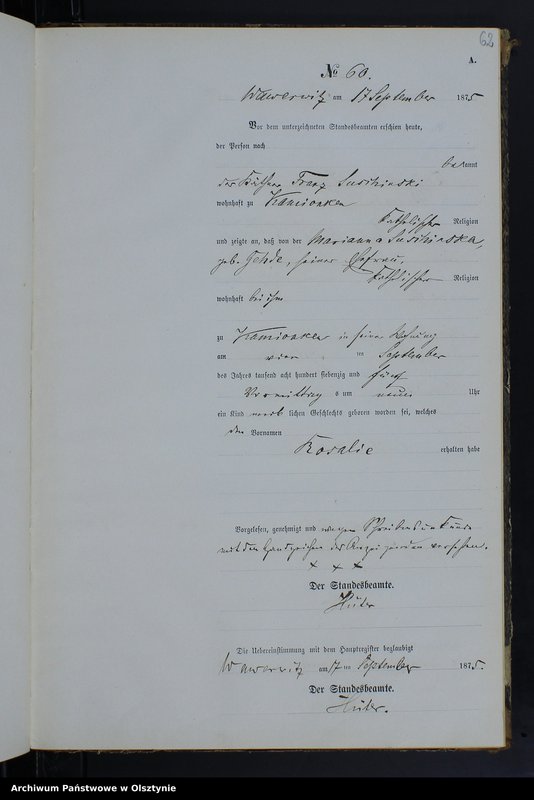 62
A.
№ 60.
Wawerwitz am 17 September 1875
Vor dem unterzeichneten Standesbeamten erschien heute,
der Person nach
bekannt
der Käthner Franz
wohnhaft zu Kamionken
katholischer Religion
und zeigte an, daß von der Marianna
geb. , seiner Ehefrau,
katholischer Religion
wohnhaft bei ihm
zu Kamionken in seiner Wohnung
am vier ten September
des Jahres tausend acht hundert siebenzig und fünf
Vormittag s um neun Uhr
ein Kind weib lichen Geschlechts geboren worden sei, welches
den Vornamen
Rosalie
erhalten habe
Vorgelesen, genehmigt und wegen Schreibensunkunde
mit den Handzeichen des Anzeigenden versehen.
× × ×
Der Standesbeamte.
Hüter
Die Uebereinstimmung mit dem Hauptregister beglaubigt
Wawerwitz am 17 ten September 1875.
Der Standesbeamte.
Hüter.
Archiwum Państwowe w Olsztynie